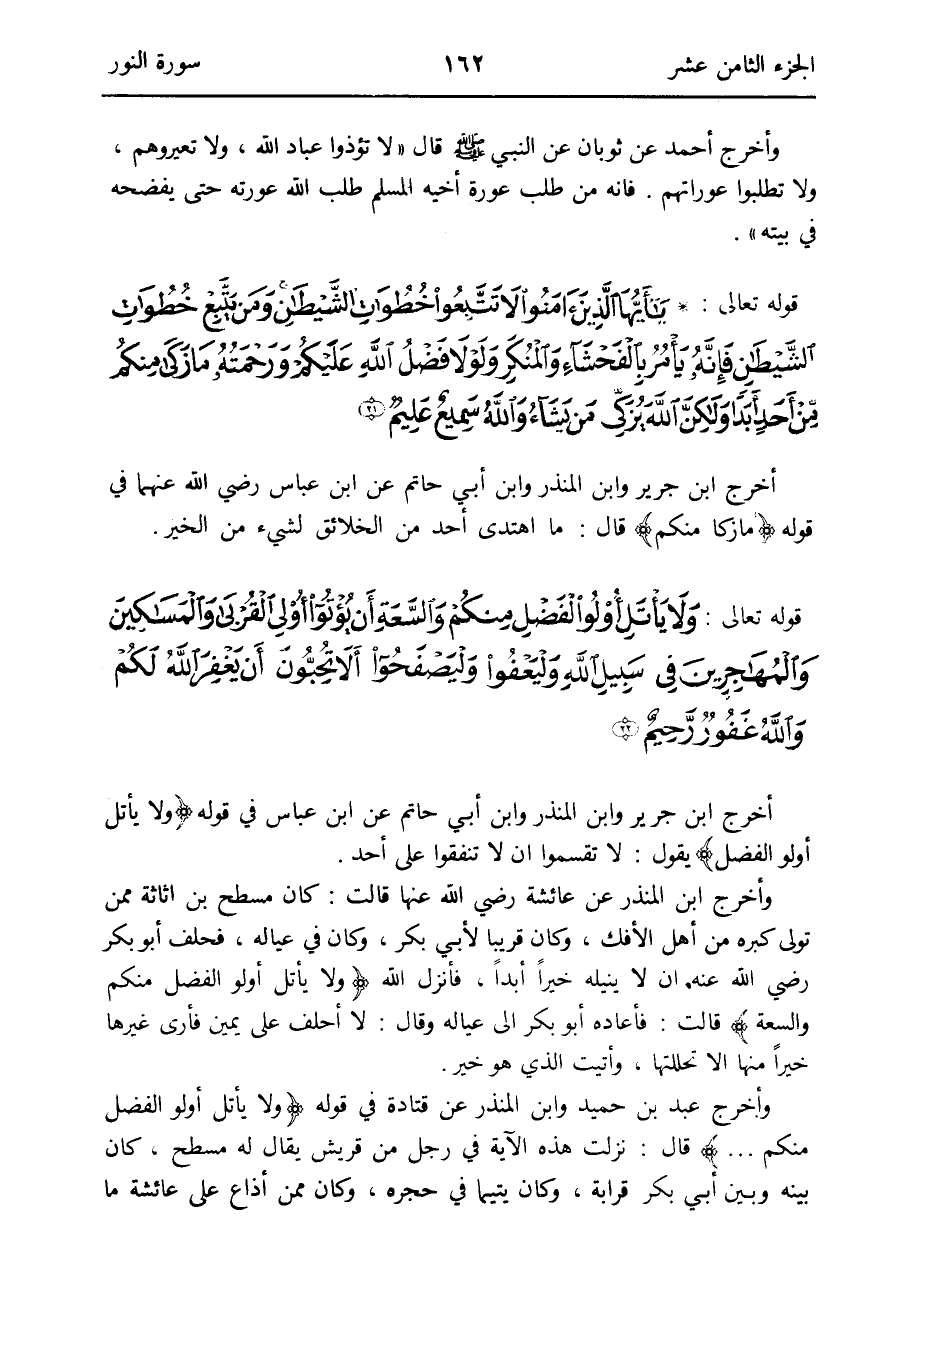 الجزء الثامن عشر ١٦٢ سورة النور
وأخرج أحمد عن ثوبان عن النبي ﷺ قال «لا تؤذوا عباد الله ، ولا تعيروهم ،
ولا تطلبوا عوراتهم . فانه من طلب عورة أخيه المسلم طلب الله عورته حتى يفضحه
في بيته» .
قوله تعالى : * يَٰٓأَيُّهَا ٱلَّذِينَ ءَامَنُوا۟ لَا تَتَّبِعُوا۟ خُطُوَٰتِ ٱلشَّيْطَٰنِ ۚ وَمَن يَتَّبِعْ خُطُوَٰتِ
ٱلشَّيْطَٰنِ فَإِنَّهُۥ يَأْمُرُ بِٱلْفَحْشَآءِ وَٱلْمُنكَرِ وَلَوْلَا فَضْلُ ٱللَّهِ عَلَيْكُمْ وَرَحْمَتُهُۥ مَا زَكَىٰ مِنكُم
مِّنْ أَحَدٍ أَبَدًا وَلَٰكِنَّ ٱللَّهَ يُزَكِّى مَن يَشَآءُ وَٱللَّهُ سَمِيعٌ عَلِيمٌ ٢١
أخرج ابن جرير وابن المنذر وابن أبي حاتم عن ابن عباس رضي الله عنهما في
قوله ﴿مازكا منكم﴾ قال : ما اهتدى أحد من الخلائق لشيء من الخير .
قوله تعالى : وَلَا يَأْتَلِ أُو۟لُوا۟ ٱلْفَضْلِ مِنكُمْ وَٱلسَّعَةِ أَن يُؤْتُوٓا۟ أُو۟لِى ٱلْقُرْبَىٰ وَٱلْمَسَٰكِينَ
وَٱلْمُهَٰجِرِينَ فِى سَبِيلِ ٱللَّهِ وَلْيَعْفُوا۟ وَلْيَصْفَحُوٓا۟ أَلَا تُحِبُّونَ أَن يَغْفِرَ ٱللَّهُ لَكُمْ
وَٱللَّهُ غَفُورٌ رَّحِيمٌ ٢٢
أخرج ابن جرير وابن المنذر وابن أبي حاتم عن ابن عباس في قوله ﴿ولا يأتل
أولو الفضل﴾ يقول : لا تقسموا ان لا تنفقوا على أحد .
وأخرج ابن المنذر عن عائشة رضي الله عنها قالت : كان مسطح بن اثاثة ممن
تولى كبره من أهل الأفك ، وكان قريبا لأبي بكر ، وكان في عياله ، فحلف أبو بكر
رضي الله عنه، ان لا ينيله خيراً أبداً ، فأنزل الله ﴿ ولا يأتل أولو الفضل منكم
والسعة ﴾ قالت : فأعاده أبو بكر الى عياله وقال : لا أحلف على يمين فأرى غيرها
خيراً منها الا تحللتها ، وأتيت الذي هو خير .
وأخرج عبد بن حميد وابن المنذر عن قتادة في قوله ﴿ولا يأتل أولو الفضل
منكم ... ﴾ قال : نزلت هذه الآية في رجل من قريش يقال له مسطح ، كان
بينه وبين أبي بكر قرابة ، وكان يتيما في حجره ، وكان ممن أذاع على عائشة ما